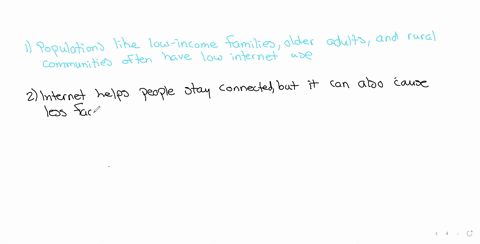 1) Populations like low-income families, older adults, and rural
communities often have low internet use
2) Internet helps people stay connected, but it can also cause
less fac